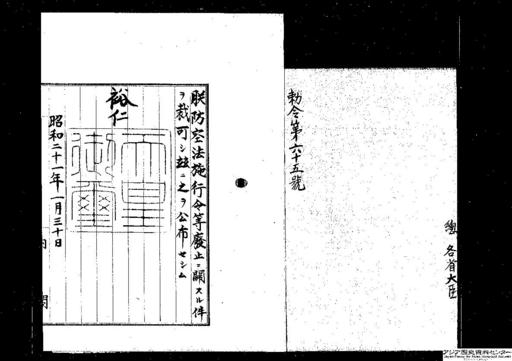 勅令第六十五號
總 各省大臣
朕防空法施行令等廢止ニ關スル件
ヲ裁可シ茲ニ之ヲ公布セシム
裕仁
天皇御璽
昭和二十一年一月三十日
内閣
アジア歴史資料センター